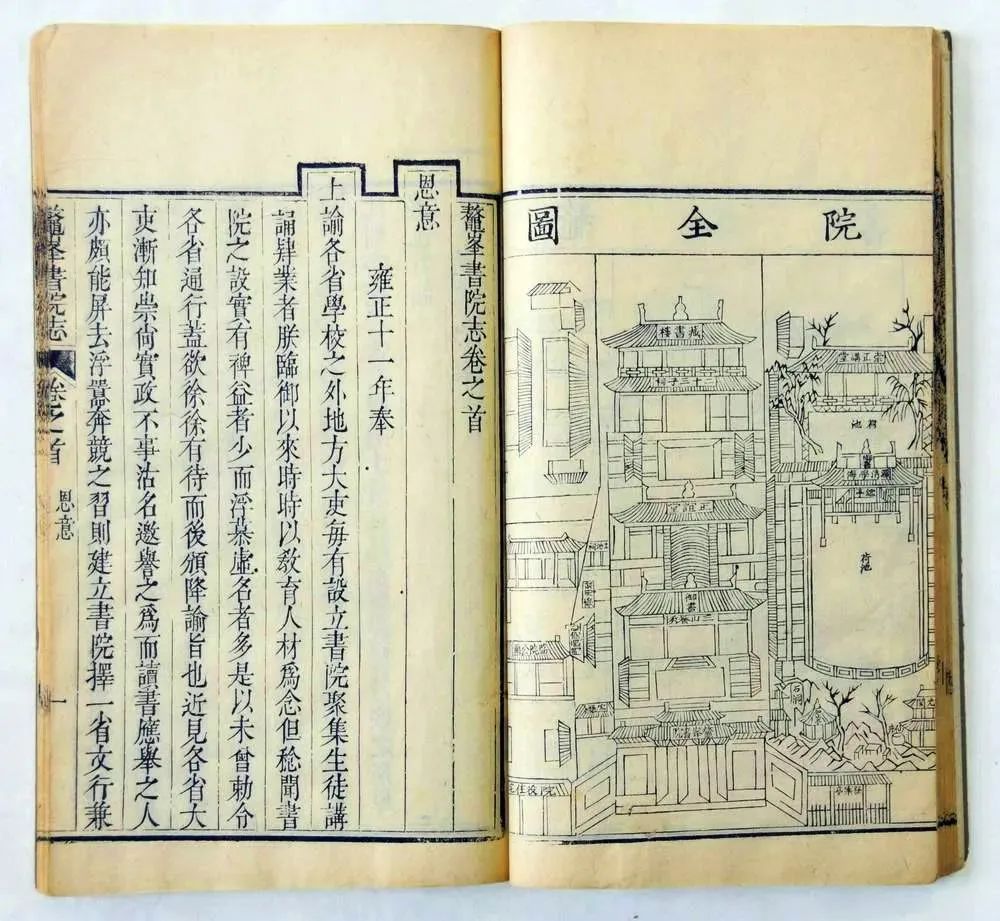 院全圖
崇正講堂
藏書樓
二十三子祠
正誼堂
御書
三山養秀
荷池
石洞
鼇峯書院志卷之首
恩意
雍正十一年奉
上諭各省學校之外地方大吏每有設立書院聚集生徒講
誦肄業者朕臨御以來時時以敎育人材爲念但稔聞書
院之設實有裨益者少而浮慕虛名者多是以未曾勅令
各省通行蓋欲徐徐有待而後頒降諭旨也近見各省大
吏漸知崇尙實政不事沽名邀譽之爲而讀書應舉之人
亦頗能屏去浮囂奔競之習則建立書院擇一省文行兼
鼇峯書院志
卷之首
恩意
一